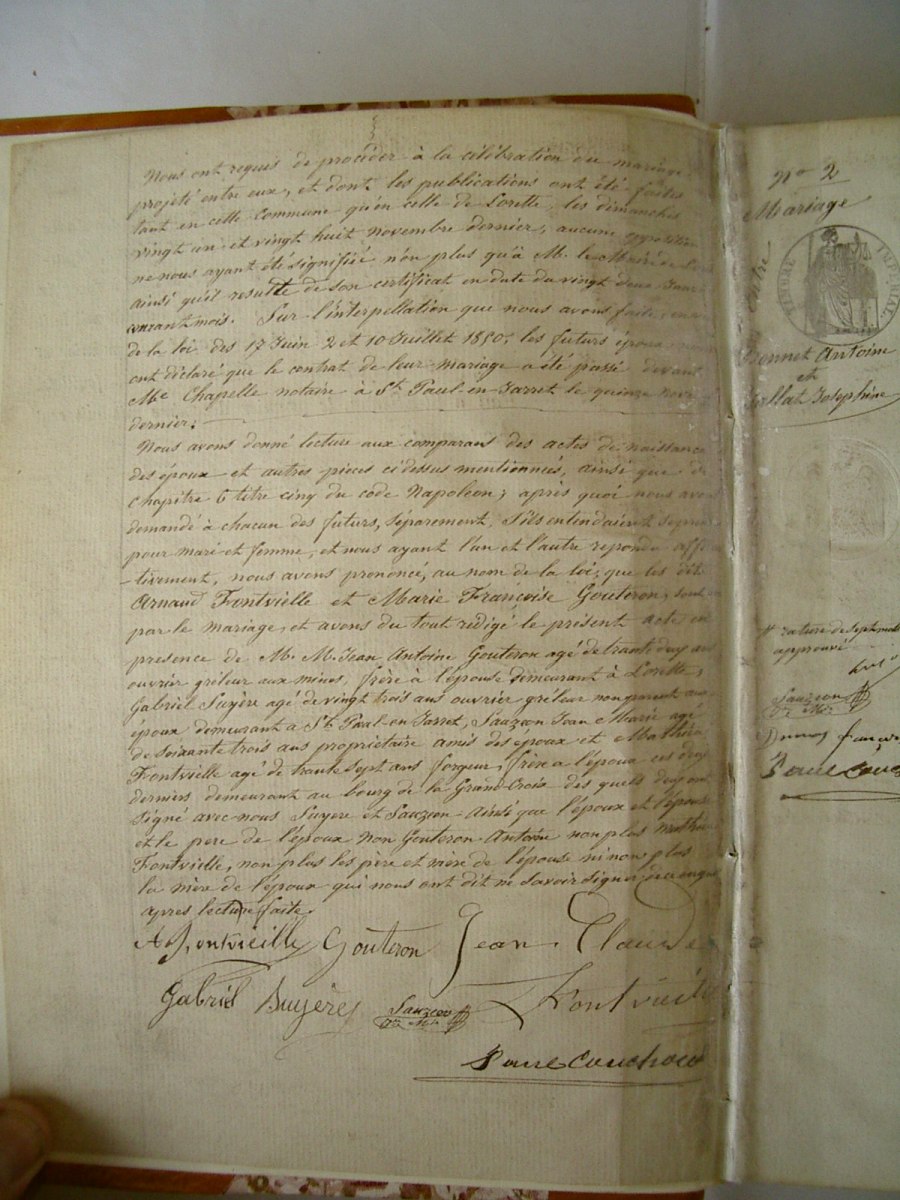 Nous ont requis de procéder à la célébration du mariage
projeté entre eux, et dont les publications ont été faites
tant en cette Commune qu'en celle de Lorette, les dimanches
vingt un et vingt huit novembre dernier, aucune opposition
ne nous ayant été signifié non plus qu'à M. le Maire de
ainsi qu'il resulte de son certificat en date du vingt deux
courant mois. Sur l'interpellation que nous avons faite
de la loi des 17 Juin 2 et 10 Juillet 1850, les futurs époux
ont déclaré que le contrat de leur mariage a été passé devant
Me Chapelle notaire à St Paul-en-Jarret le quinze
dernier.
Nous avons donné lecture aux comparans des actes de naissance
des époux et autres pièces cidessus mentionnées, ainsi que du
chapitre 6 titre cinq du code Napoleon; après quoi nous
demandé à chacun des futurs, séparement, s'ils entendaient
pour mari et femme, et nous ayant l'un et l'autre repondu
-tivement, nous avons prononcé, au nom de la loi, que les dits
Arnaud Fontvielle et Marie Françoise Gouteron, sont
par le mariage, et avons du tout redigé le present acte en
presence de M. M. Jean Antoine Gouteron agé de trante deux ans
ouvrier grêleur aux mines, frère à l'épouse demeurant à Lorette,
Gabriel agé de vingt trois ans ouvrier grêleur non parent aux
époux demeurant à St Paul-en-Jarret, Sauzéon Jean Marie agé
de soixante trois ans propriétaire amis des époux et Mathieu
Fontvielle agé de trante sept ans forgeur, frère a l'époux ces deux
derniers demeurant au bourg de la Grand-Croix des quels deux ont
signé avec nous et Sauzéon Ainsi que l'époux et l'épouse
et le pere de l'époux non Gouteron Antoine non plus Mathieu
Fontvielle, non plus les père et mère de l'épouse ni non plus
la mère de l'époux qui nous ont dit ne savoir signer
apres lecture faite.
A Fontvieille Gouteron Jean Claude
Gabriel Sauzéon Fontvieille
Jn Mie
No 2
Mariage
entre
TIMBRE IMPERIAL
Bonnet Antoine
et
Josephine
rature de sept mots
approuvé
Sauzéon
Jn Mie